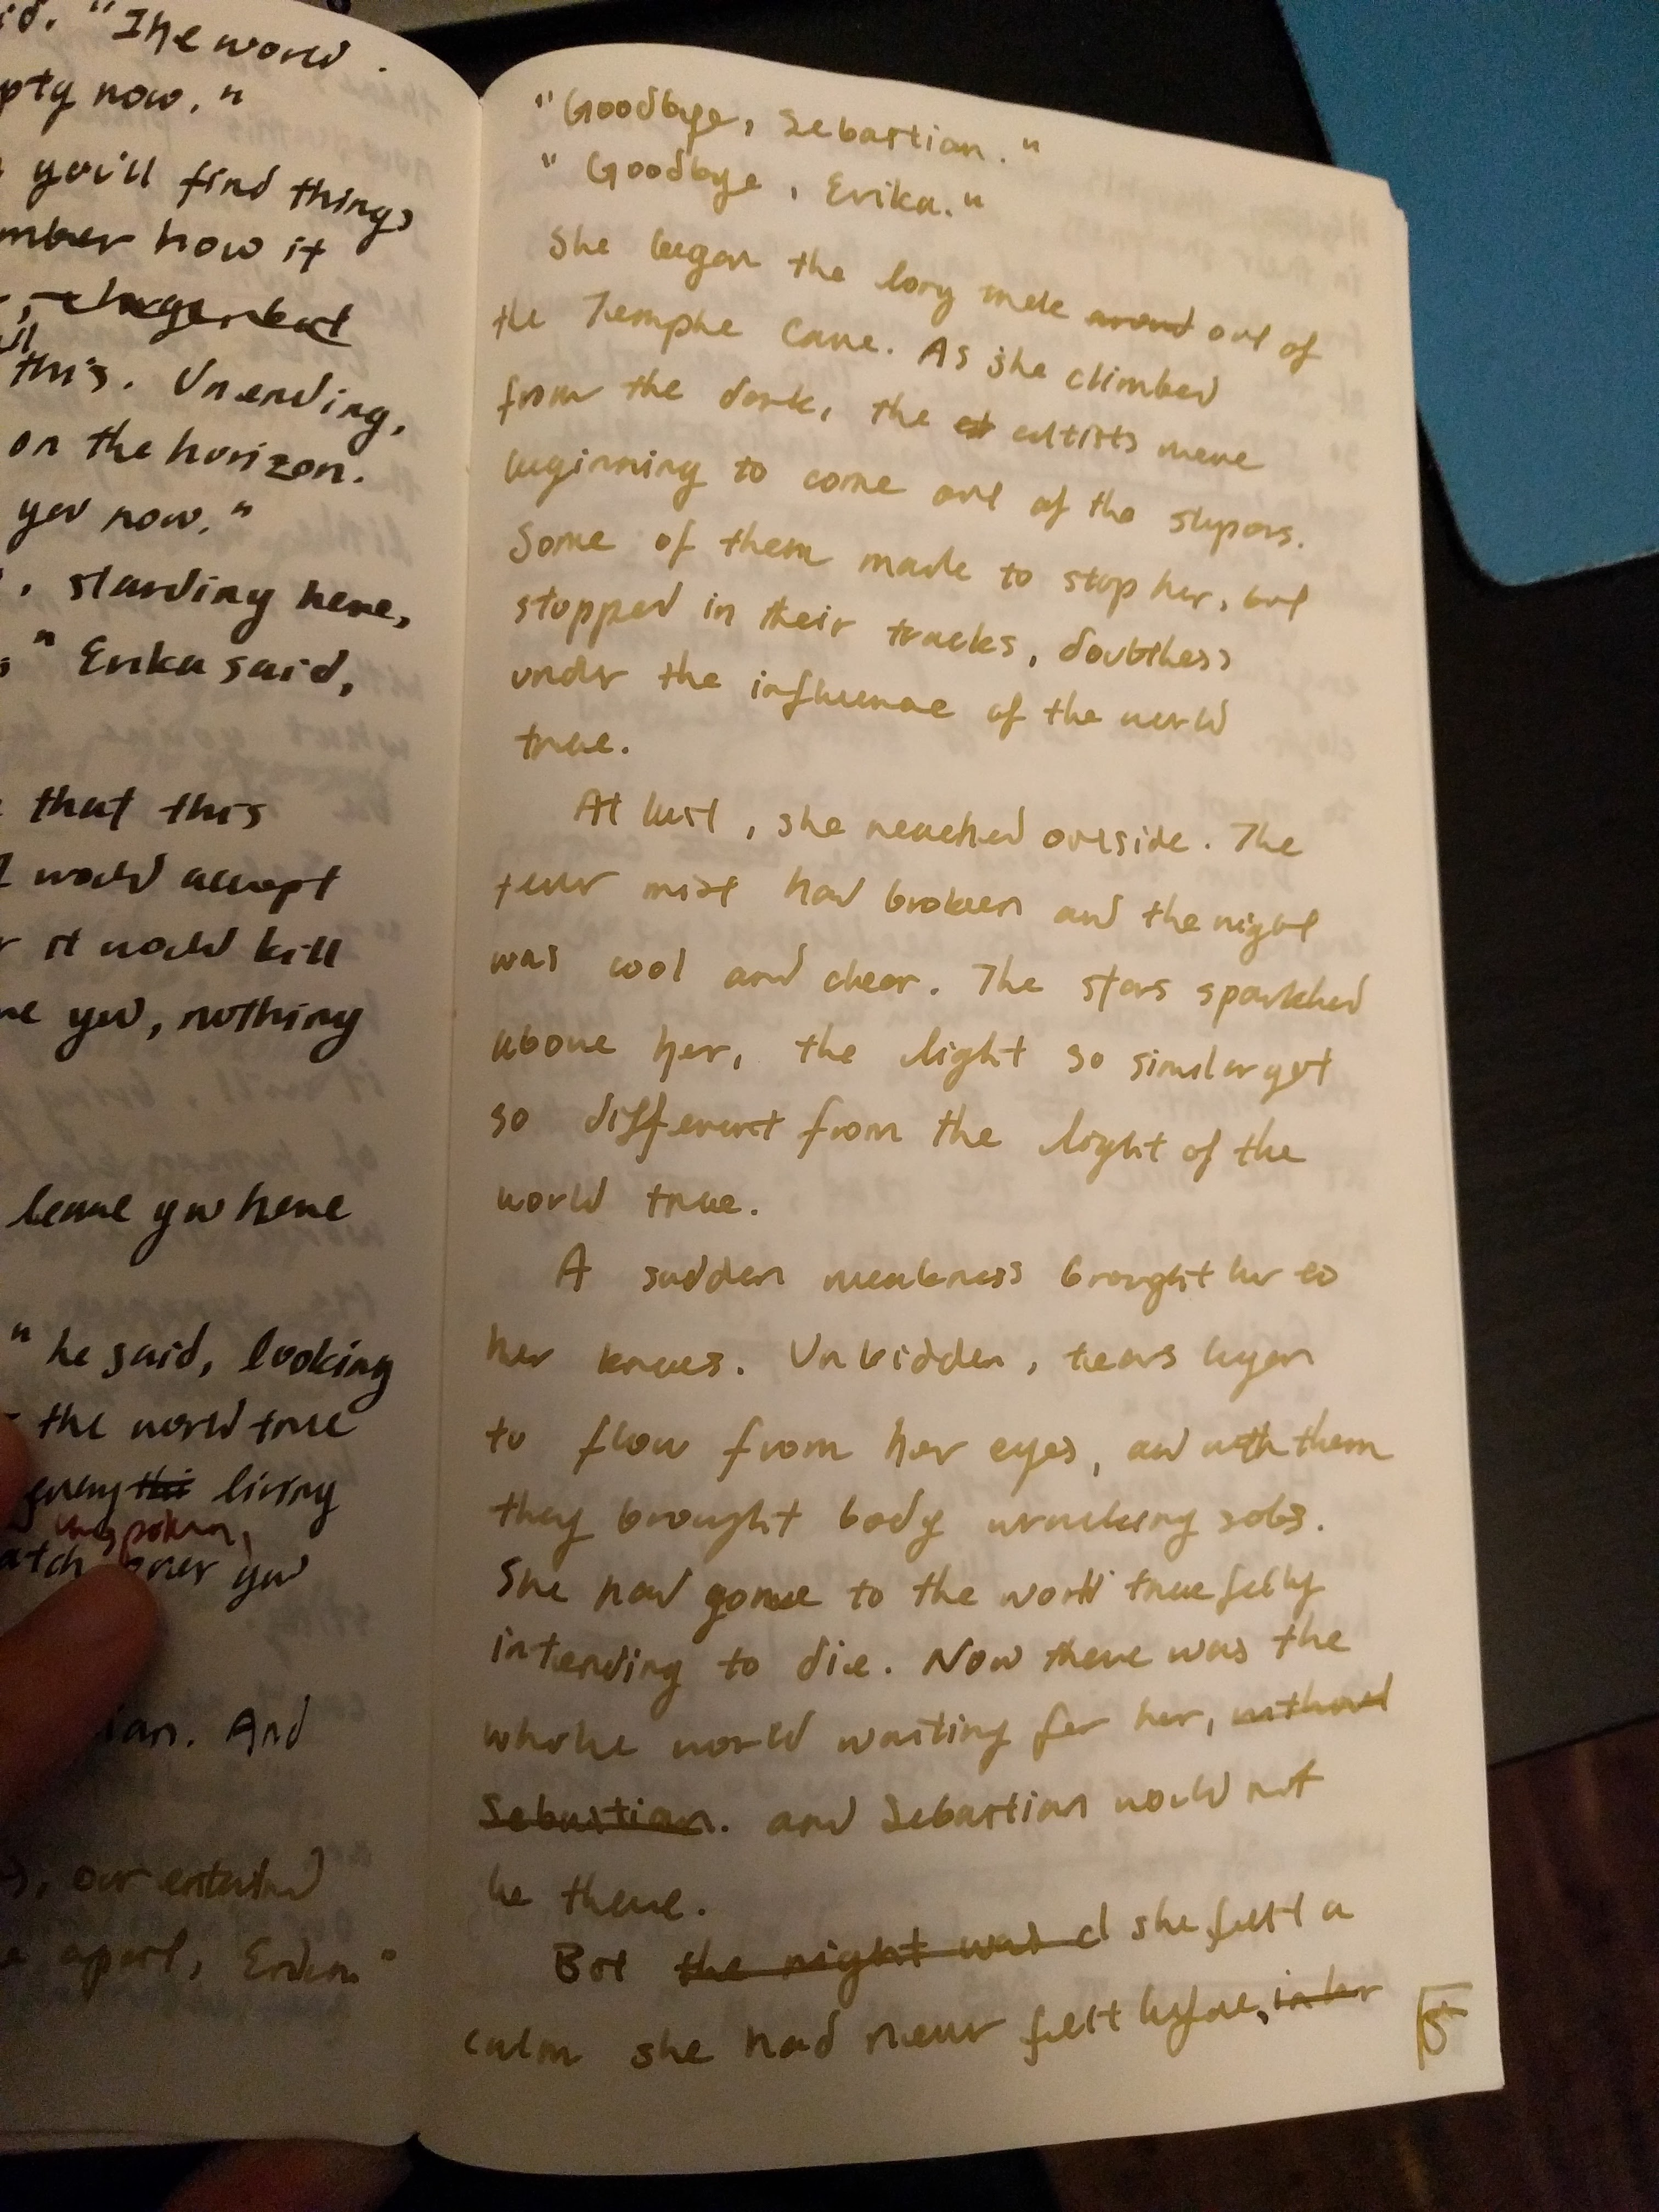 id. "The world
pty now."
you'll find things
mber how it
this. Unending,
on the horizon.
you now."
, standing here,
" Erika said,
that this
would accept
r it would kill
me you, nothing
leave you here
" he said, looking
the world true
every thi living
unspoken,
atch over you
ian. And
s, our entwined
apart, Erika."
"Goodbye, Sebastian."
"Goodbye, Erika."
She began the long walk around out of
the Temple Cave. As she climbed
from the dark, the cultists were
beginning to come out of the stupors.
Some of them made to stop her, but
stopped in their tracks, doubtless
under the influence of the world
true.
At last, she reached outside. The
fever mist had broken and the night
was cool and clear. The stars sparkled
above her, the light so similar yet
so different from the light of the
world true.
A sudden weakness brought her to
her knees. Unbidden, tears began
to flow from her eyes, and with them
they brought body wracking sobs.
She had gone to the world true fully
intending to die. Now there was the
whole world waiting for her, without
Sebastian. and Sebastian would not
be there.
But the night was cl she felt a
calm she had never felt before, in her